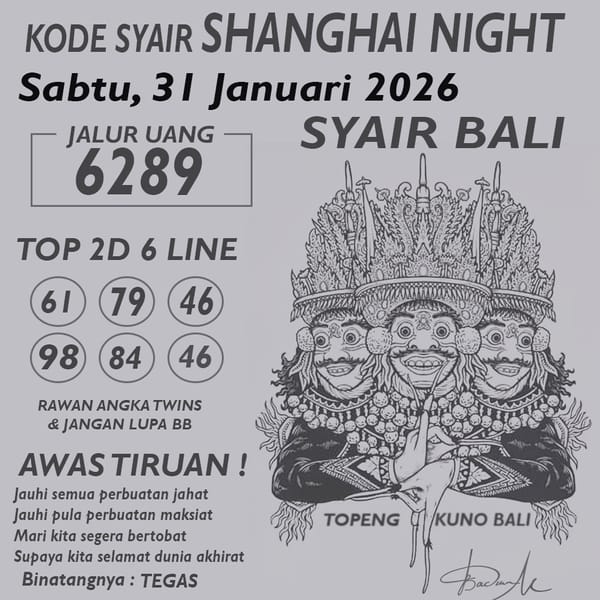 KODE SYAIR SHANGHAI NIGHT
Sabtu, 31 Januari 2026
SYAIR BALI
JALUR UANG
6289
TOP 2D 6 LINE
61 79 46
98 84 46
RAWAN ANGKA TWINS
& JANGAN LUPA BB
AWAS TIRUAN !
Jauhi semua perbuatan jahat
Jauhi pula perbuatan maksiat
Mari kita segera bertobat
Supaya kita selamat dunia akhirat
Binatangnya : TEGAS
TOPENG KUNO BALI